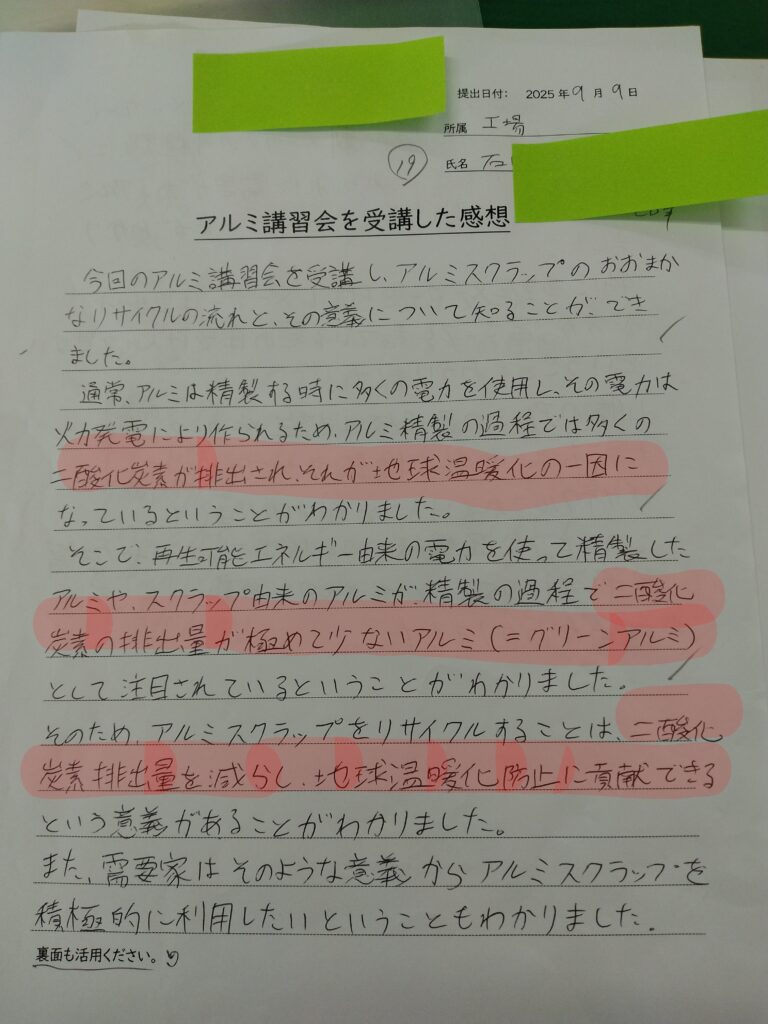 提出日付: 2025年9月9日
所属 工場
19
氏名 石
アルミ講習会を受講した感想
今回のアルミ講習会を受講し、アルミスクラップのおおまか
なリサイクルの流れと、その意義について知ることができ
ました。
通常、アルミは精製する時に多くの電力を使用し、その電力は
火力発電により作られるため、アルミ精製の過程では多くの
二酸化炭素が排出され、それが地球温暖化の一因に
なっているということがわかりました。
そこで、再生可能エネルギー由来の電力を使って精製した
アルミや、スクラップ由来のアルミが、精製の過程で二酸化
炭素の排出量が極めて少ないアルミ(=グリーンアルミ)
として注目されているということがわかりました。
そのため、アルミスクラップをリサイクルすることは、二酸化
炭素排出量を減らし、地球温暖化防止に貢献できる
という意義があることがわかりました。
また、需要家はそのような意義からアルミスクラップを
積極的に利用したいということもわかりました。
裏面も活用ください。